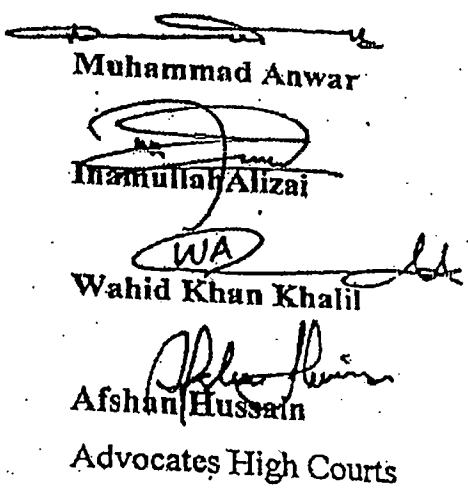 Muhammad Anwar
Inamullah Alizai
WA
Wahid Khan Khalil
Afshan Hussain
Advocates High Courts